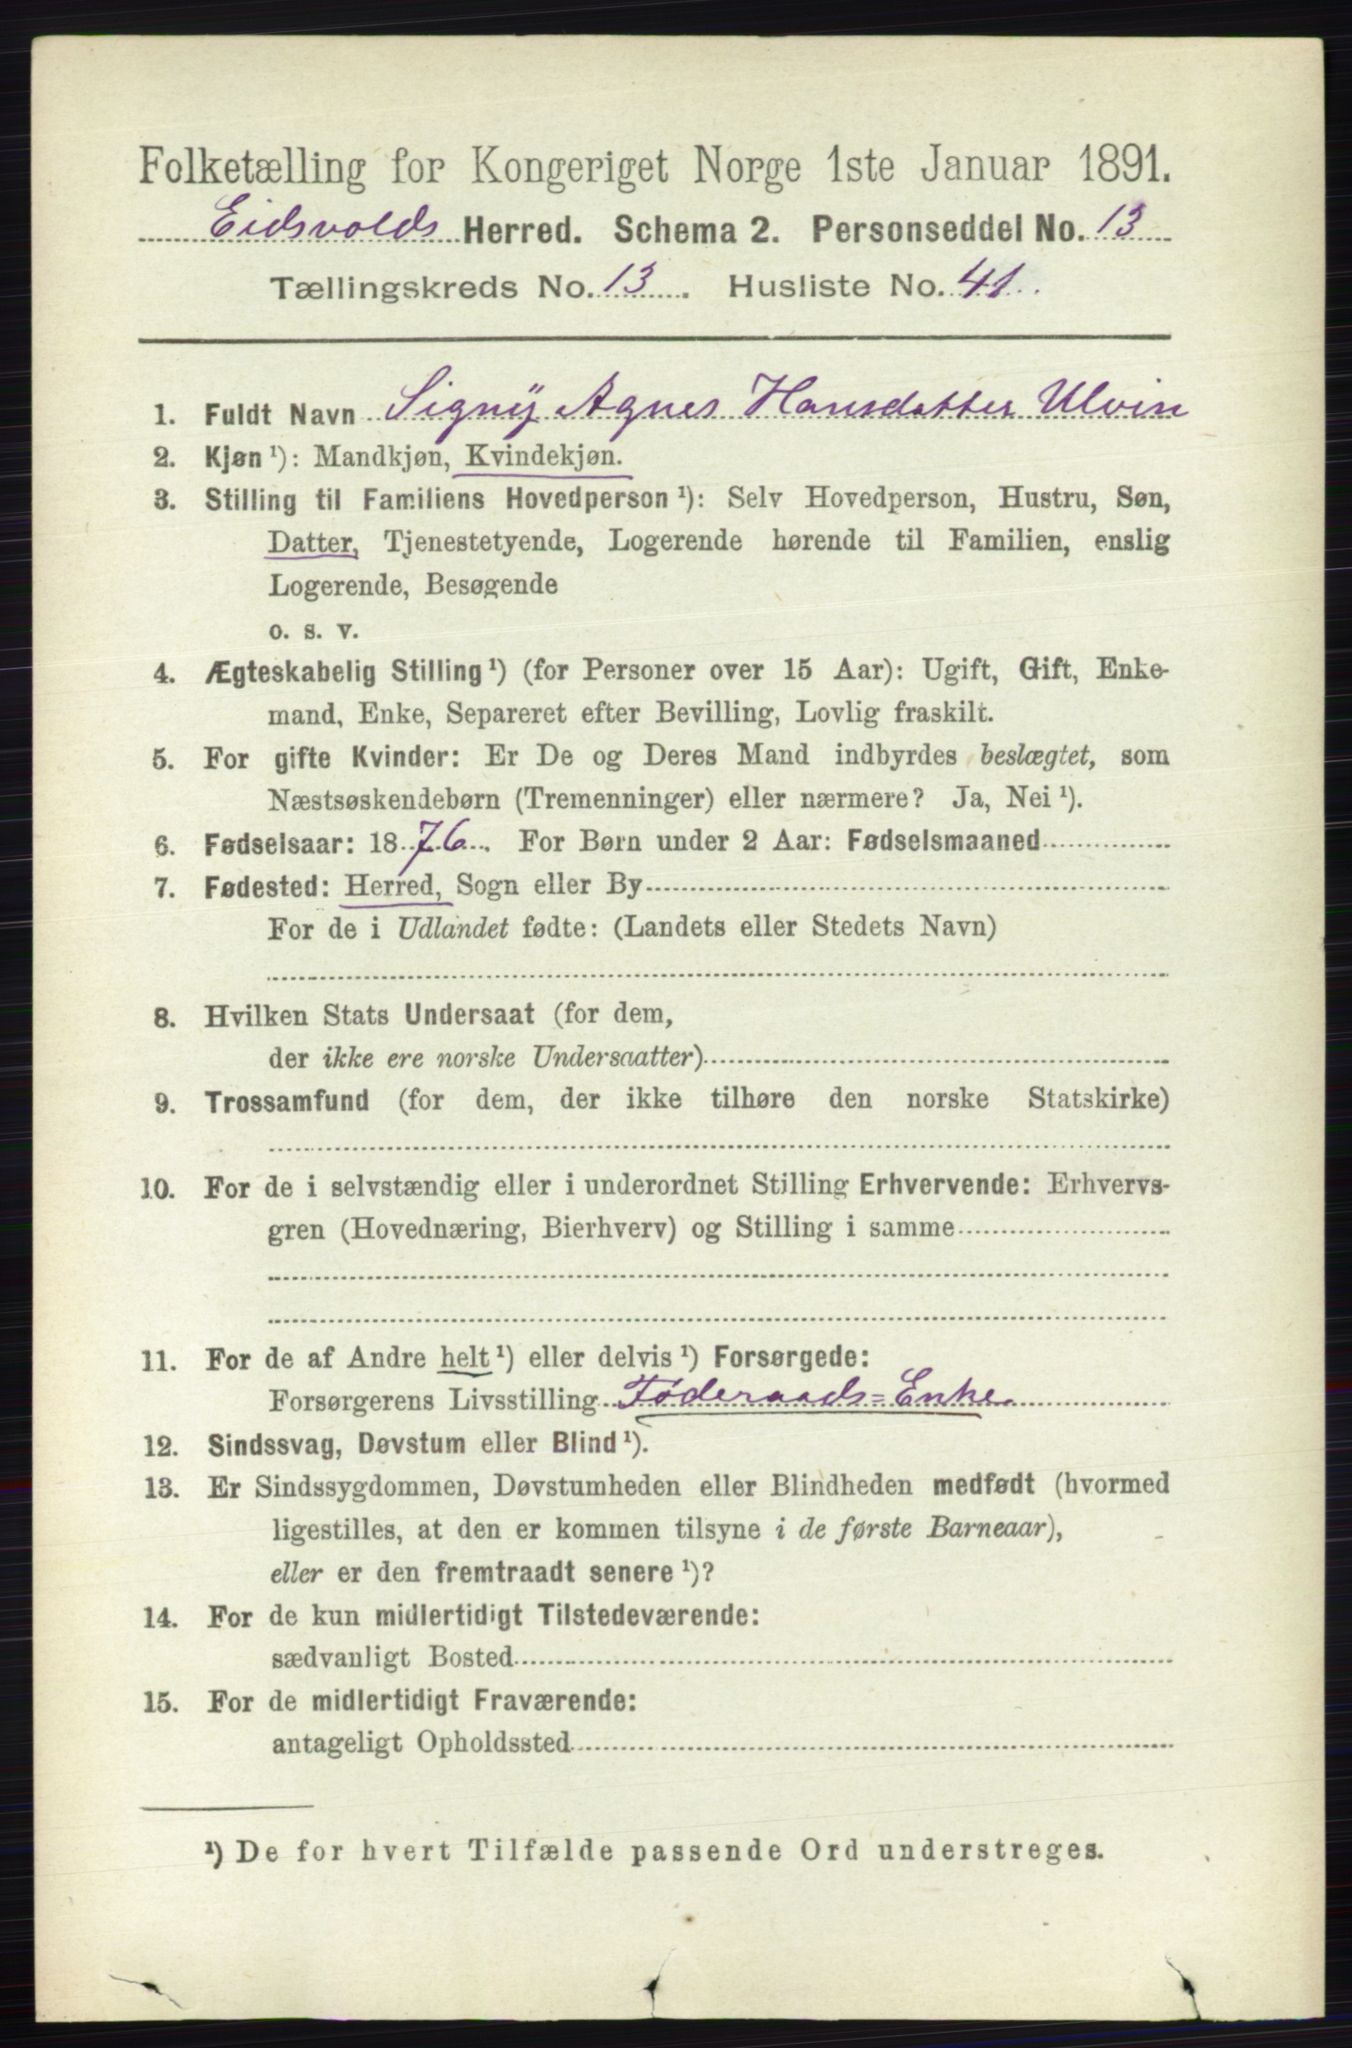 Folketælling for Kongeriget Norge 1ste Januar 1891.
Eidsvolds Herred. Schema 2. Personseddel No. 13
Tællingskreds No. 13. Husliste No. 41.
1. Fuldt Navn Signy Agnes Hansdatter Ulvin
2. Kjøn ¹): Mandkjøn, Kvindekjøn.
3. Stilling til Familiens Hovedperson ¹): Selv Hovedperson, Hustru, Søn,
Datter, Tjenestetyende, Logerende hørende til Familien, enslig
Logerende, Besøgende
o. s. v.
4. Ægteskabelig Stilling ¹) (for Personer over 15 Aar): Ugift, Gift, Enke-
mand, Enke, Separeret efter Bevilling, Lovlig fraskilt.
5. For gifte Kvinder: Er De og Deres Mand indbyrdes beslægtet, som
Næstsøskendebørn (Tremenninger) eller nærmere? Ja, Nei ¹).
6. Fødselsaar: 1876. For Børn under 2 Aar: Fødselsmaaned
7. Fødested: Herred, Sogn eller By
For de i Udlandet fødte: (Landets eller Stedets Navn)
8. Hvilken Stats Undersaat (for dem,
der ikke ere norske Undersaatter)
9. Trossamfund (for dem, der ikke tilhøre den norske Statskirke)
10. For de i selvstændig eller i underordnet Stilling Erhvervende: Erhvervs-
gren (Hovednæring, Bierhverv) og Stilling i samme
11. For de af Andre helt ¹) eller delvis ¹) Forsørgede:
Forsørgerens Livsstilling Føderaads=Enke.
12. Sindssvag, Døvstum eller Blind ¹).
13. Er Sindssygdommen, Døvstumheden eller Blindheden medfødt (hvormed
ligestilles, at den er kommen tilsyne i de første Barneaar),
eller er den fremtraadt senere ¹)?
14. For de kun midlertidigt Tilstedeværende:
sædvanligt Bosted
15. For de midlertidigt Fraværende:
antageligt Opholdssted
¹) De for hvert Tilfælde passende Ord understreges.